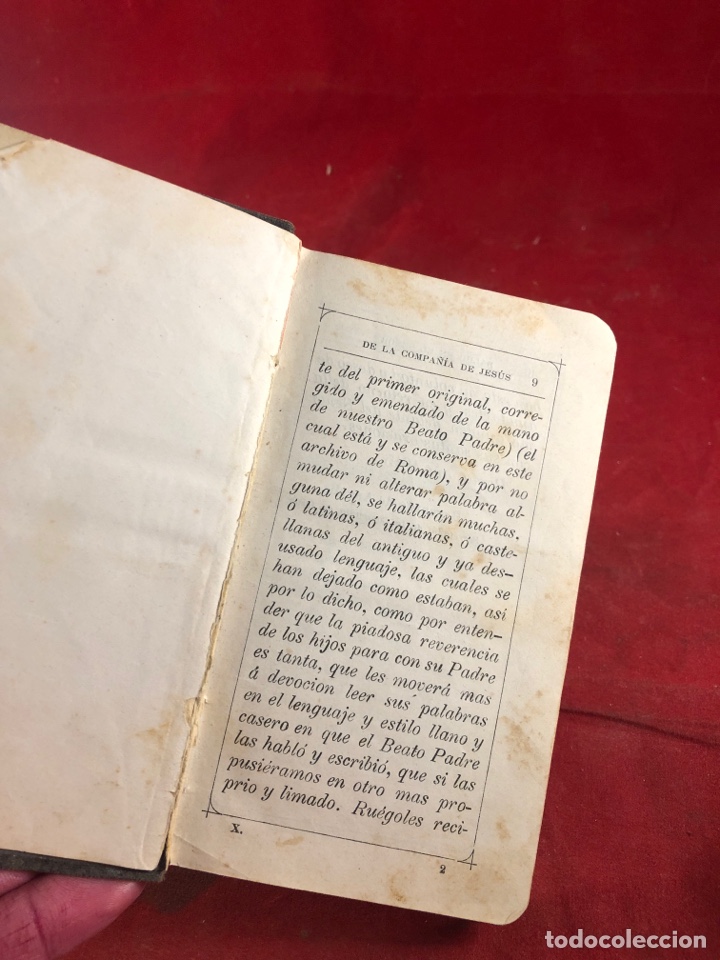 DE LA COMPAÑÍA DE JESÚS 9
te del primer original, corre-
gido y emendado de la mano
de nuestro Beato Padre) (el
cual está y se conserva en este
archivo de Roma), y por no
mudar ni alterar palabra al-
guna dél, se hallarán muchas,
ó latinas, ó italianas, ó caste-
llanas del antiguo y ya des-
usado lenguaje, las cuales se
han dejado como estaban, así
por lo dicho, como por enten-
der que la piadosa reverencia
de los hijos para con su Padre
es tanta, que les moverá mas
á devocion leer sus palabras
en el lenguaje y estilo llano y
casero en que el Beato Padre
las habló y escribió, que si las
pusiéramos en otro mas pro-
prio y limado. Ruégoles reci-
X. 2
todocoleccion